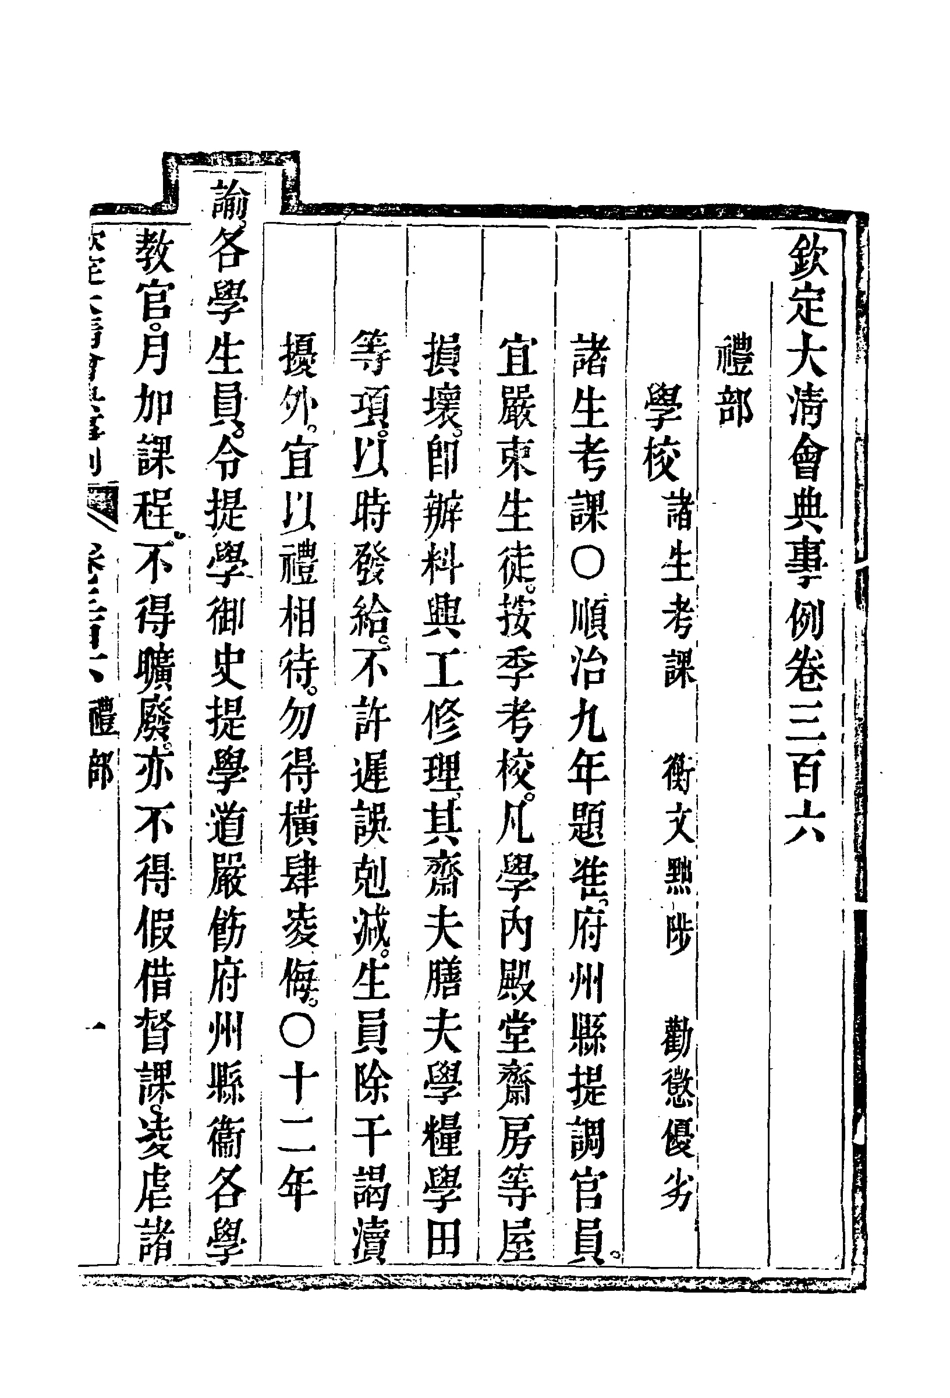 欽定大清會典事例卷三百六
禮部
學校 諸生考課 衡文黜陟 勸懲優劣
諸生考課〇順治九年題准。府州縣提調官員。
宜嚴束生徒。按季考校。凡學內殿堂齋房等屋
損壞。卽辦料興工修理。其齋夫膳夫學糧學田
等項。以時發給。不許遲誤剋減。生員除干謁瀆
擾外。宜以禮相待。勿得橫肆凌侮。〇十二年
諭。各學生員。令提學御史提學道嚴飭府州縣衞各學
教官。月加課程。不得曠廢。亦不得假借督課。凌虐諸
欽定大清會典事例 卷三百六 禮部 一